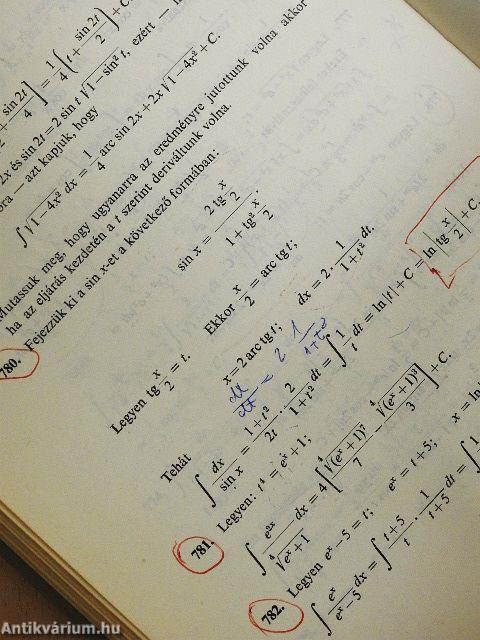 sin 2t] = 1/4 (t + sin 2t/2) + C.
2x és sin 2t = 2 sin t √1 − sin² t, ezért
— azt kapjuk, hogy
∫√1 − 4x² dx = 1/4 arc sin 2x + 2x√1 − 4x² + C.
Mutassuk meg, hogy ugyanarra az eredményre jutottunk volna akkor
ha az eljárás kezdetén a t szerint deriváltunk volna.
780. Fejezzük ki a sin x-et a következő formában:
sin x = 2 tg x/2 / 1 + tg² x/2.
Legyen tg x/2 = t. Ekkor x/2 = arc tg t;
x = 2 arc tg t; dx = 2 · 1/1 + t² dt.
= 2 1/1+t²
Tehát
∫ dx/sin x = ∫ 1 + t²/2t · 2/1 + t² dt = ∫ 1/t dt = ln|t| + C = ln|tg x/2| + C.
781. Legyen: t⁴ = eˣ + 1;
∫ e²ˣ/⁴√eˣ + 1 dx = 4 [⁴√(eˣ + 1)⁷/7 − ⁴√(eˣ + 1)³/3] + C.
782. Legyen eˣ − 5 = t; eˣ = t + 5; x = ln
∫ eˣ/eˣ − 5 dx = ∫ t + 5/t · 1/t + 5 dt = ∫
Antikvárium.hu